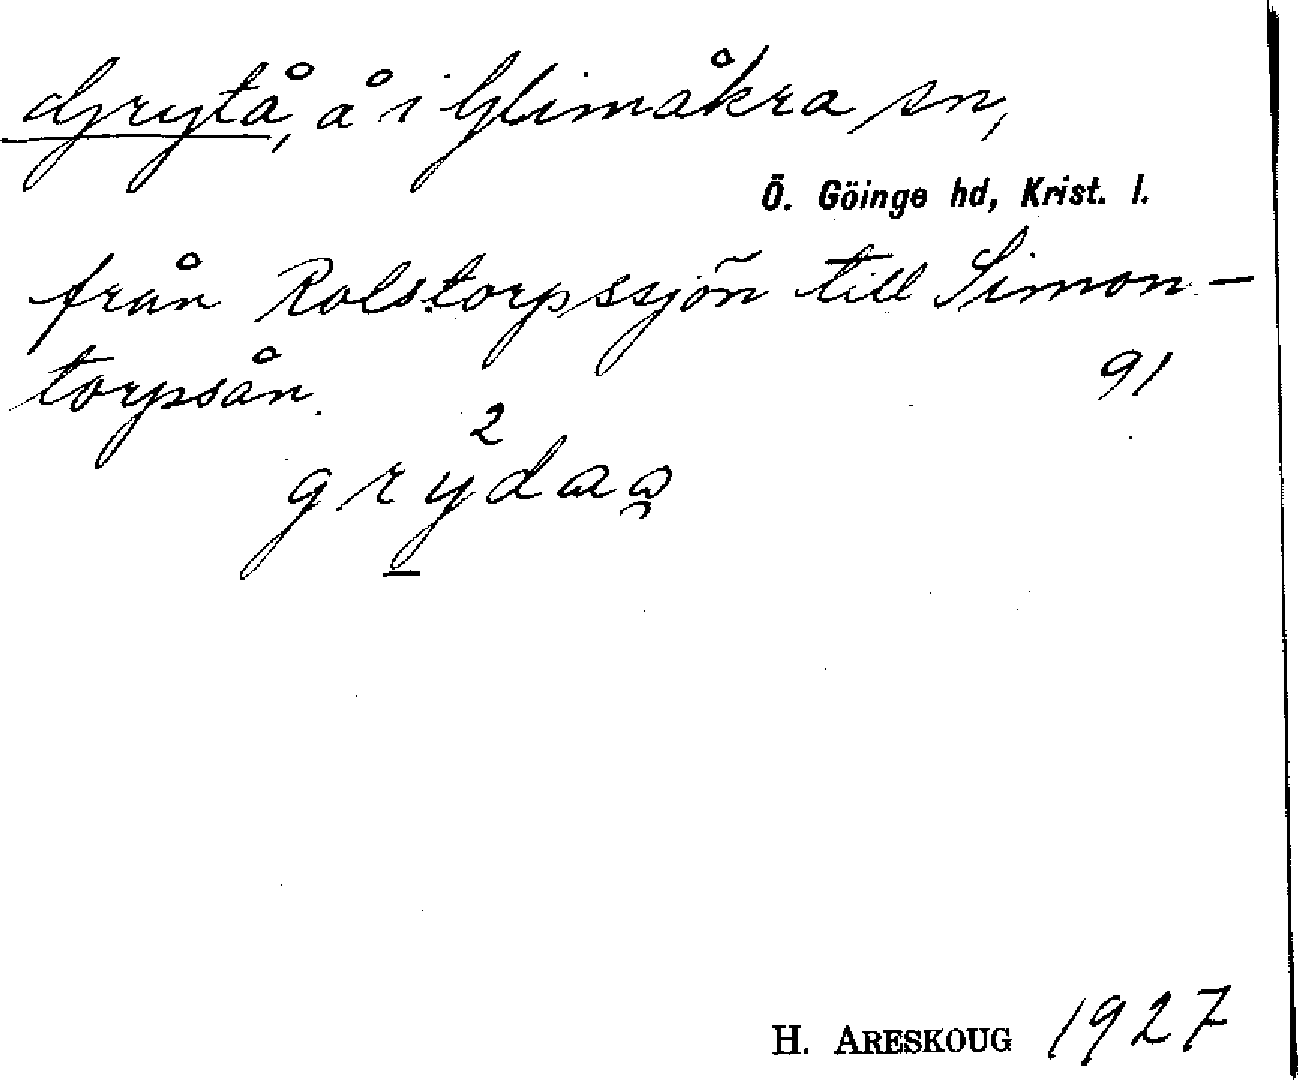 Grytå, å i Glimåkra sn,
Ö. Göinge hd, Krist. l.
från Rolstorpssjön till Simon-
torpsån.
91
2
grydaa
H. ARESKOUG 1927